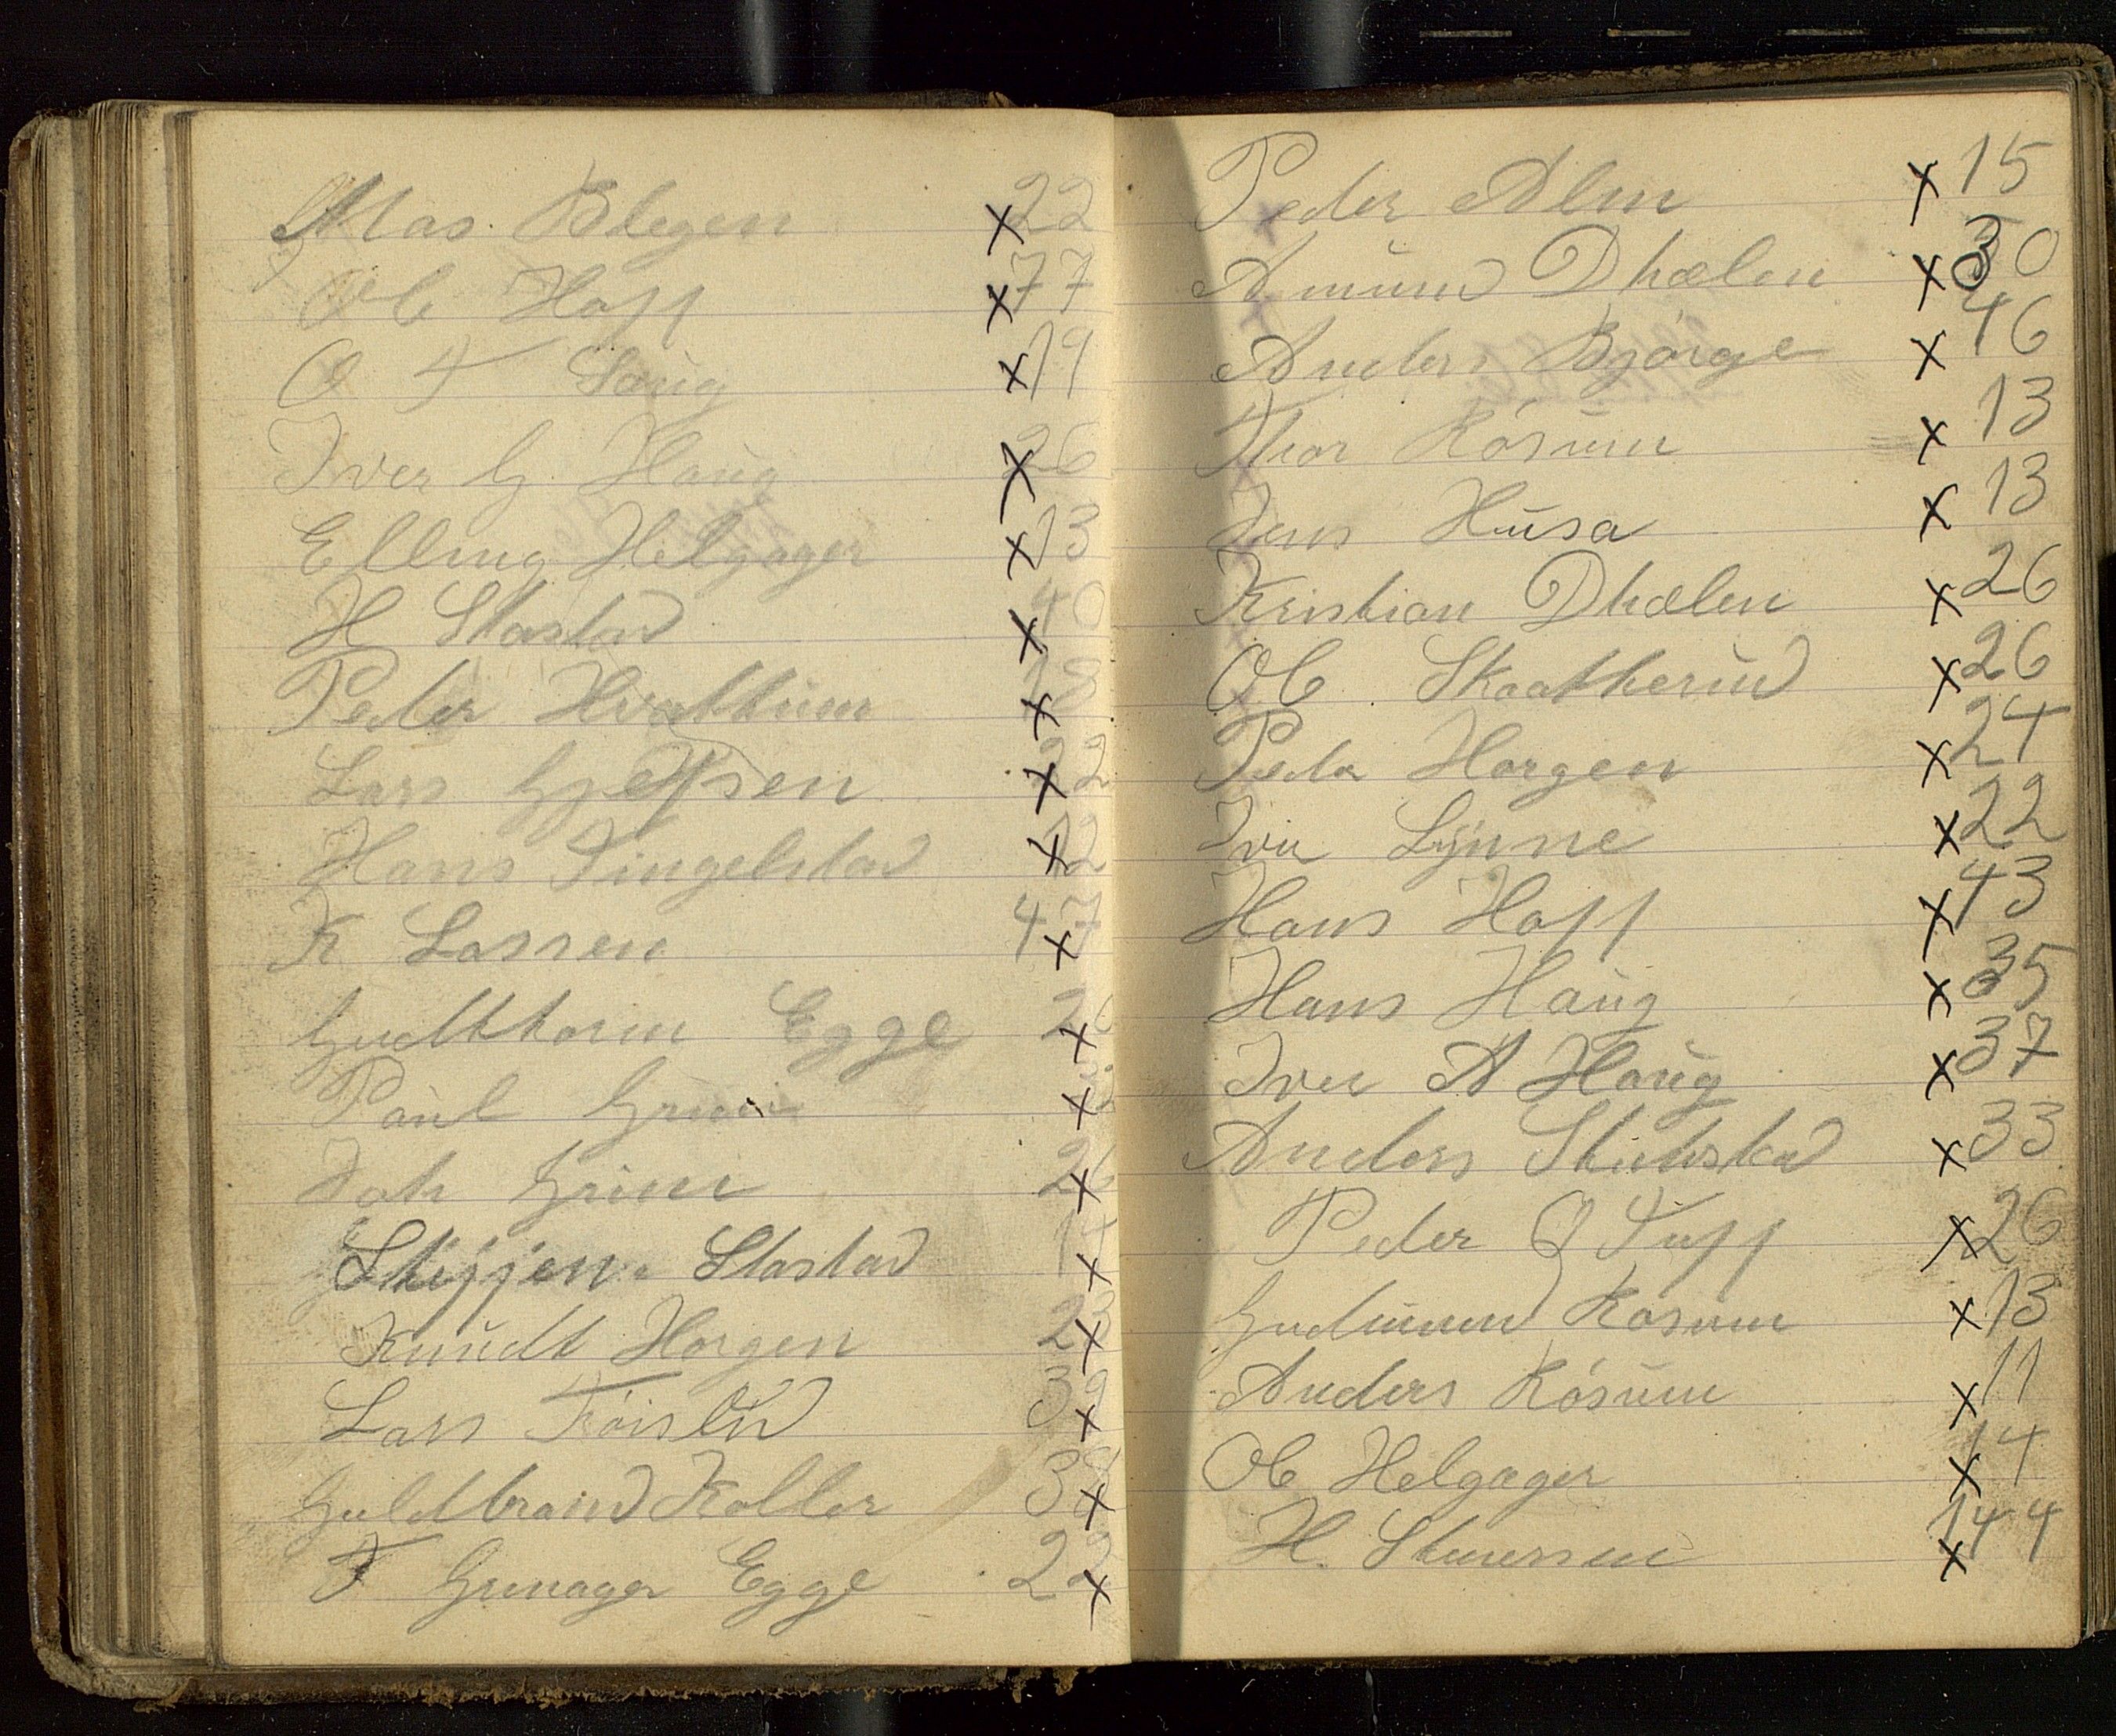 Mas. Blegen x 22
Ole Hopp x 77
O T Saug x 19
Iver G. Haug x 26
Elling Helgager x 13
H Stastad x 40
Peder Hvattum x 18
Lars x 22
Hans Tingelstad x 12
K Lassen 47 x
Gudthorm Egge 26 x
Paul Grini x
Joh Grini 26 x
Steffen. Stastad 14 x
Knudt Horgen 23 x
Lars Frøislid 39 x
Guldbrand Koller 38 x
T Grinager Egge 22 x
Peder Alm x 15
Amund Dhælen x 30
Anders Bjørge x 46
Thor Røsum x 13
Jens Husa x 13
Kristian Dhælen x 26
Ole Skaatherud x 26
Peder Horgen x 24
Iver Lynne x 22
Hans Hopp x 43
Hans Haug x 35
Iver A Haug x 37
Anders x 33
Peder O Tuff x 26
Gudmund Røsum x 13
Anders Røsum x 11
Ole Helgager x 14
H. x 144